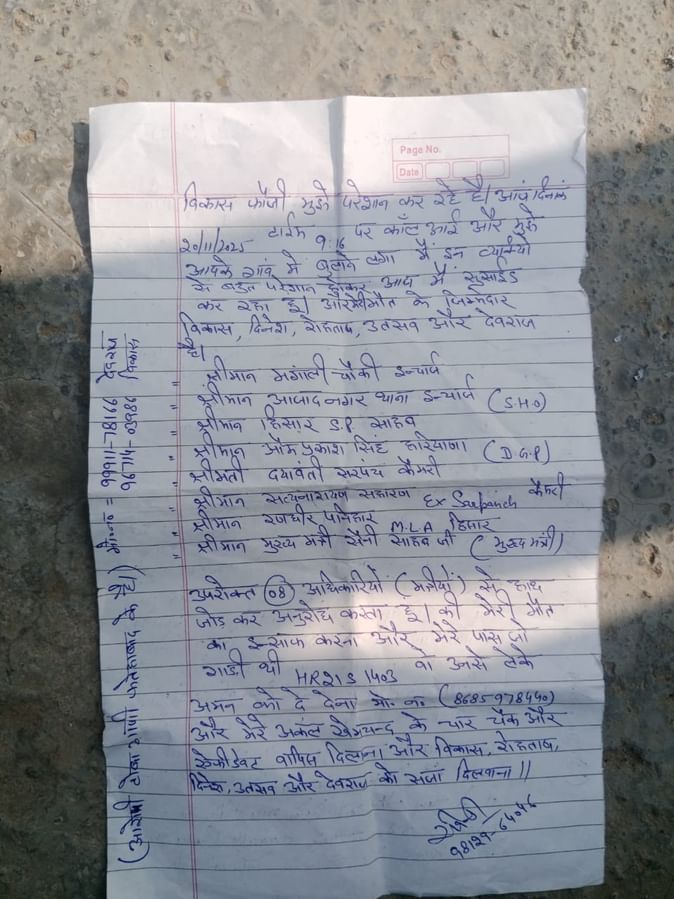 Page No.
Date
विकास फौजी मुझे परेशान कर रहे है। आज दिनांक
20/11/2025 टाईम 9:16 पर कॉल आई और मुझे
आपके गांव में बुलाने लगा मैं इन व्यक्तियों
से बहुत परेशान होकर आज मैं सुसाईड
कर रहा हूं। और मेरी मौत के जिम्मेदार
विकास, दिनेश, रोहताश, उत्सव और देवराज
है।
" श्रीमान मंगाली चौकी इन्चार्ज
" श्रीमान आजाद नगर थाना इन्चार्ज (S.H.O)
" श्रीमान हिसार S.P. साहब
" श्रीमान ओम प्रकाश सिंह हरियाणा (D.G.P)
" श्रीमती दयावंती सरपंच कैमरी
" श्रीमान सत्यनारायण सहारण Ex Sarpanch कैमरी
" श्रीमान रणधीर पनिहार M.L.A हिसार
" श्रीमान मुख्य मंत्री सैनी साहब जी (मुख्य मंत्री)
उपरोक्त 08 अधिकारियों (मंत्रीयों) से हाथ
जोड कर अनुरोध करता हूं। की मेरी मौत
का इन्साफ करना और मेरे पास जो
गाडी थी HR21S 1403 वो उनसे लेके
अमन को दे देना मो. न. (8685978440)
और मेरे अकंल खेमचन्द के चार चैक और
दिलाना और विकास, रोहताश,
दिनेश, उत्सव और देवराज को सजा दिलवाना।।
98129-64046
(आरोपी ढोबी गांव फतेहाबाद के है।) मो. न. = 99911-78166 देवराज
96714-03986 विकास